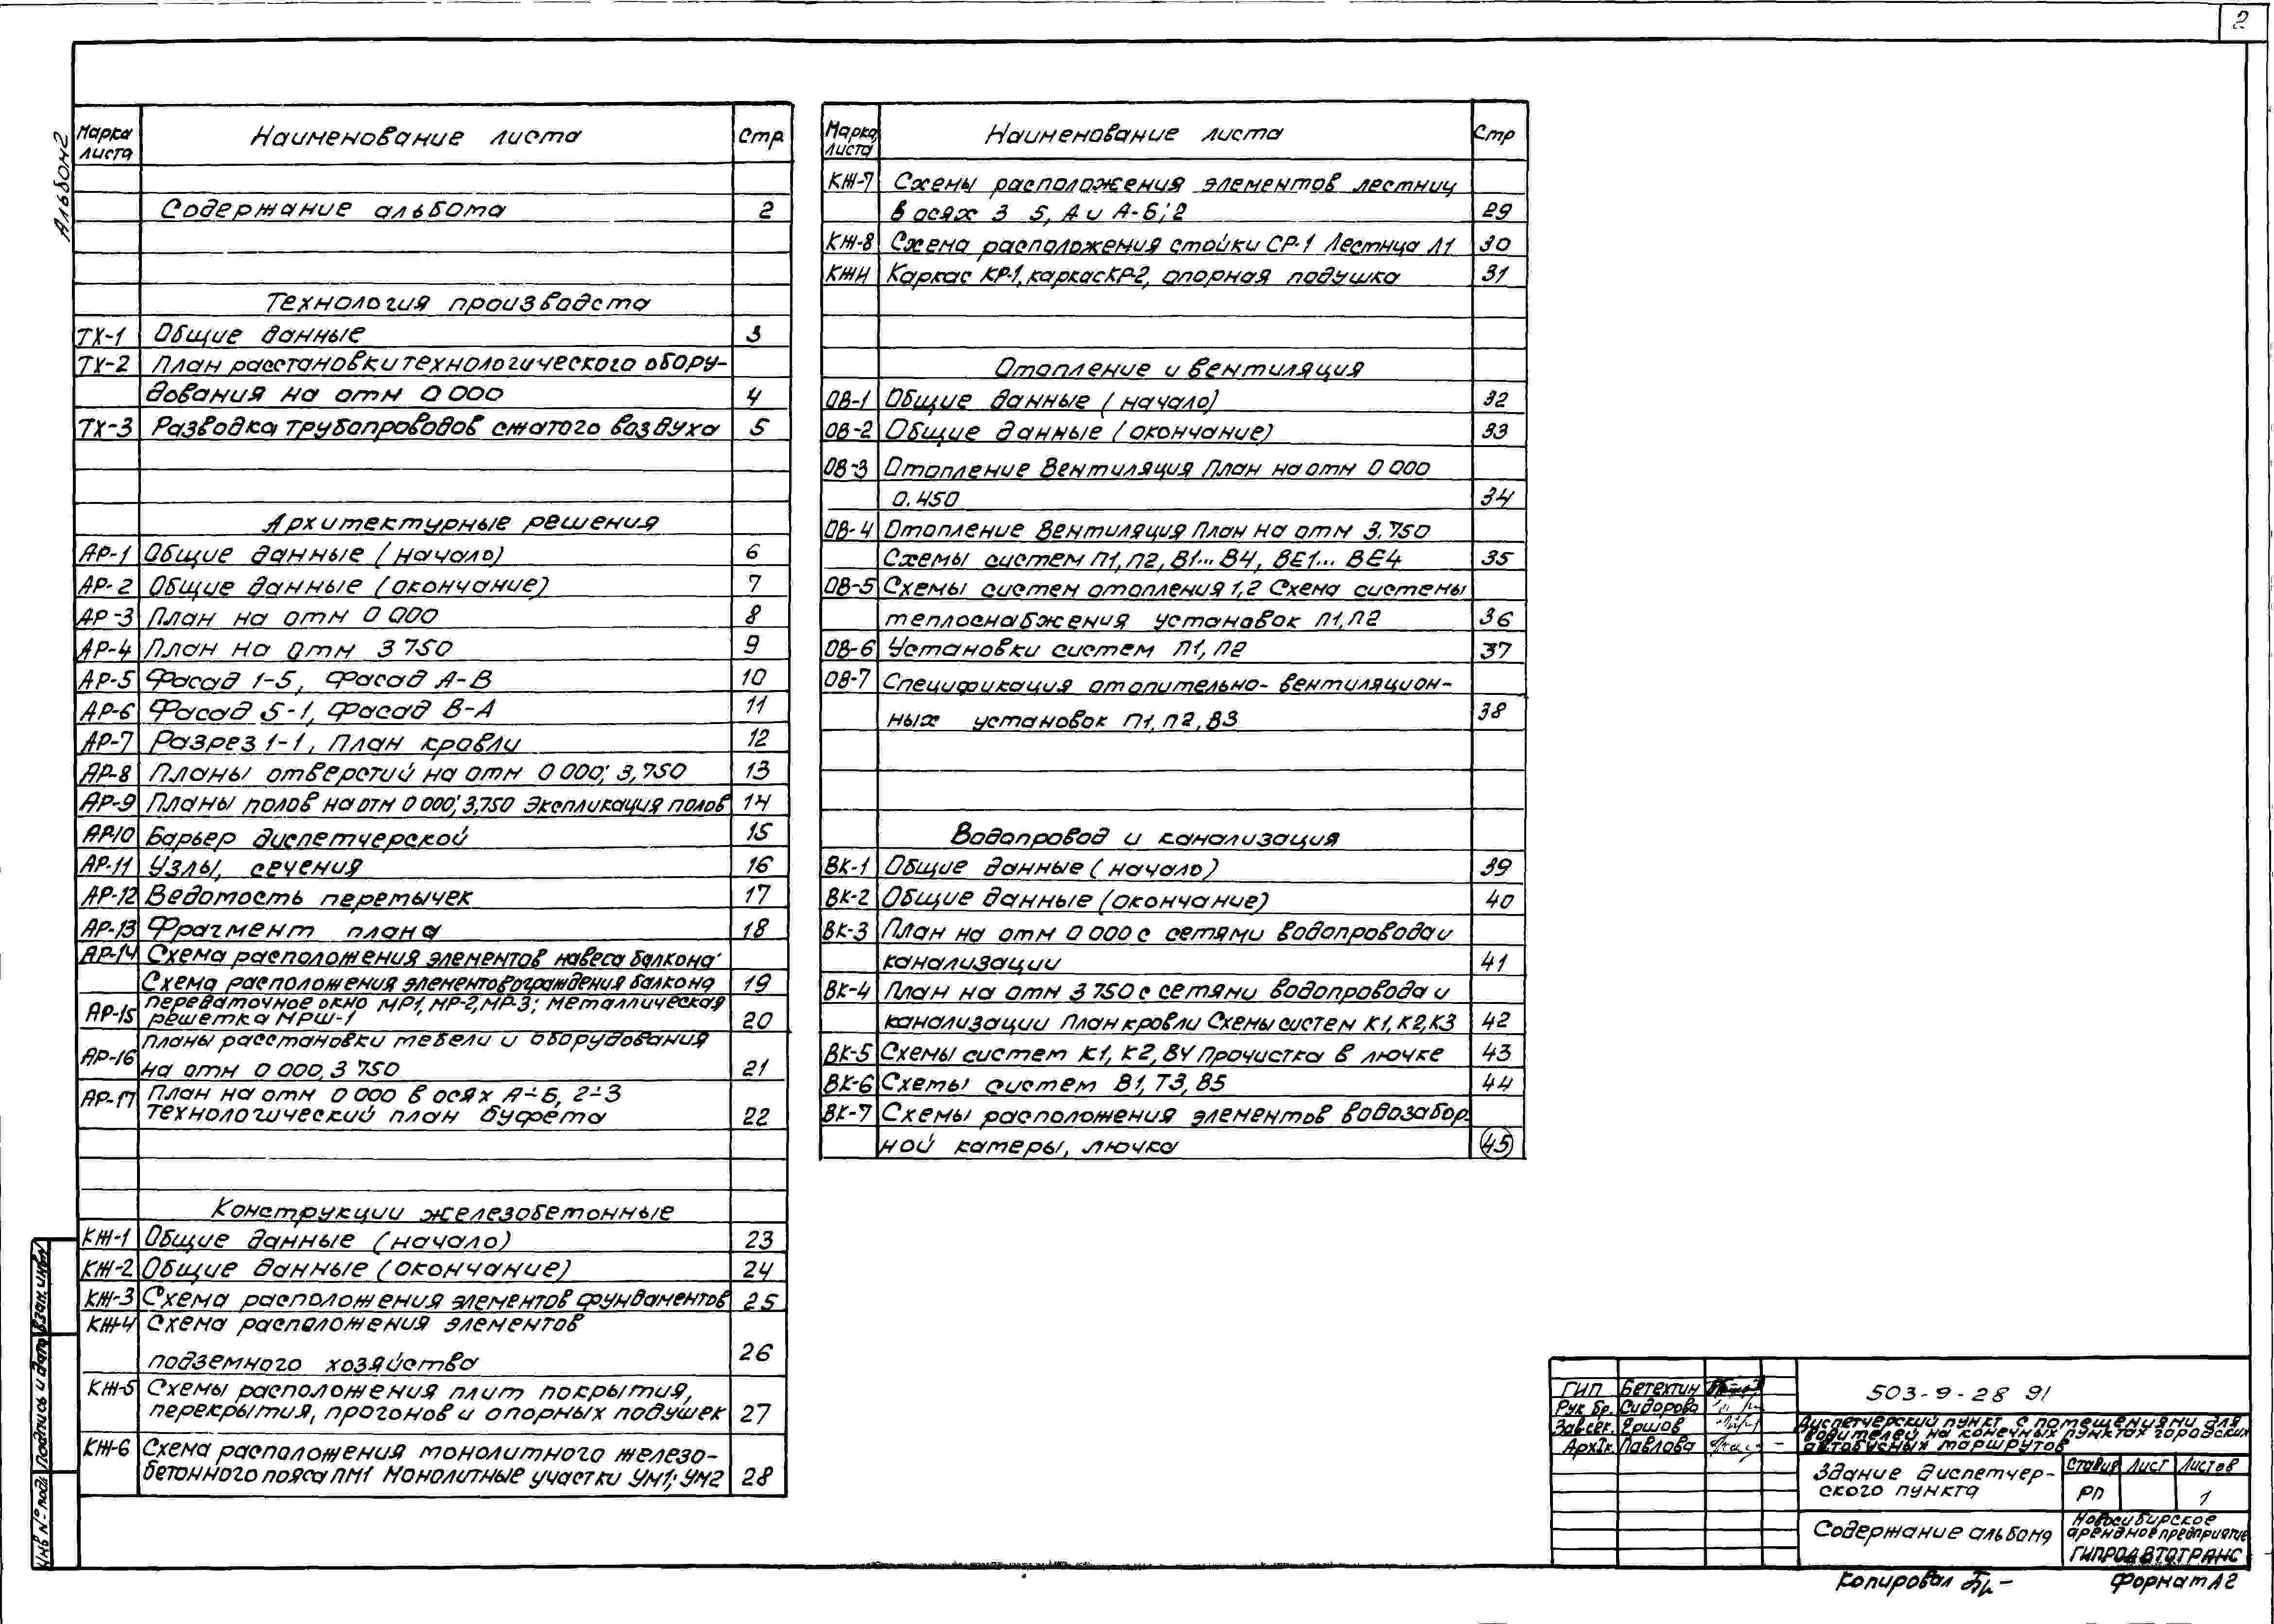 2
Альбом 2
Марка листа Наименование листа Стр
Содержание альбома 2
Технология производста
ТХ-1 Общие данные 3
ТХ-2 План расстановки технологического обору-
дования на отм 0 000 4
ТХ-3 Разводка трубопроводов сжатого воздуха 5
Архитектурные решения
АР-1 Общие данные (начало) 6
АР-2 Общие данные (окончание) 7
АР-3 План на отм 0 000 8
АР-4 План на отм 3 750 9
АР-5 Фасад 1-5, Фасад А-В 10
АР-6 Фасад 5-1, Фасад В-А 11
АР-7 Разрез 1-1, План кровли 12
АР-8 Планы отверстий на отм 0 000; 3,750 13
АР-9 Планы полов на отм 0 000; 3,750 Экспликация полов 14
АР-10 Барьер диспетчерской 15
АР-11 Узлы, сечения 16
АР-12 Ведомость перемычек 17
АР-13 Фрагмент плана 18
АР-14 Схема расположения элементов навеса балкона
Схема расположения элементов ограждения балкона 19
АР-15 Передаточное окно МР1, МР-2, МР-3; Металлическая
решетка МРШ-1 20
АР-16 Планы расстановки мебели и оборудования
на отм 0 000, 3 750 21
АР-17 План на отм 0 000 в осях А÷Б, 2÷3
Технологический план буфета 22
Конструкции железобетонные
КЖ-1 Общие данные (начало) 23
КЖ-2 Общие данные (окончание) 24
КЖ-3 Схема расположения элементов фундаментов 25
КЖ-4 Схема расположения элементов
подземного хозяйства 26
КЖ-5 Схемы расположения плит покрытия,
перекрытия, прогонов и опорных подушек 27
КЖ-6 Схема расположения монолитного железо-
бетонного пояса ПМ1 Монолитные участки УМ1; УМ2 28
Марка листа Наименование листа Стр
КЖ-7 Схемы расположения элементов лестниц
в осях 3 5, А и А-Б; 2 29
КЖ-8 Схема расположения стойки СР-1 Лестнца Л1 30
КЖИ Каркас КР-1, каркас КР-2, опорная подушка 31
Отопление и вентиляция
ОВ-1 Общие данные (начало) 32
ОВ-2 Общие данные (окончание) 33
ОВ-3 Отопление Вентиляция План на отм 0 000
0.450 34
ОВ-4 Отопление Вентиляция План на отм 3.750
Схемы систем П1, П2, В1... В4, ВЕ1... ВЕ4 35
ОВ-5 Схемы систем отопления 1,2 Схема системы
теплоснабжения установок П1, П2 36
ОВ-6 Установки систем П1, П2 37
ОВ-7 Спецификация отопительно-вентиляцион-
ных установок П1, П2, В3 38
Водопровод и канализация
ВК-1 Общие данные (начало) 39
ВК-2 Общие данные (окончание) 40
ВК-3 План на отм 0 000 с сетями водопровода и
канализации 41
ВК-4 План на отм 3 750 с сетями водопровода и
канализации План кровли Схемы систем К1, К2, К3 42
ВК-5 Схемы систем К1, К2, В4 Прочистка в лючке 43
ВК-6 Схемы систем В1, Т3, В5 44
ВК-7 Схемы расположения элементов водозабор
ной камеры, лючка 45
Взам. инв №
Подпись и дата
Инв № подл
ГИП Бетехтин
Рук. бр. Сидорова
Зав.сек. Ершов
Павлова
503-9-28 91
Диспетчерский пункт с помещениями для
водителей на конечных пунктах городских
автобусных маршрутов
Здание диспетчер-
ского пункта
Стадия Лист Листов
РП 1
Содержание альбома
Новосибирское
арендное предприятие
ГИПРОАВТОТРАНС
Копировал
Формат А2